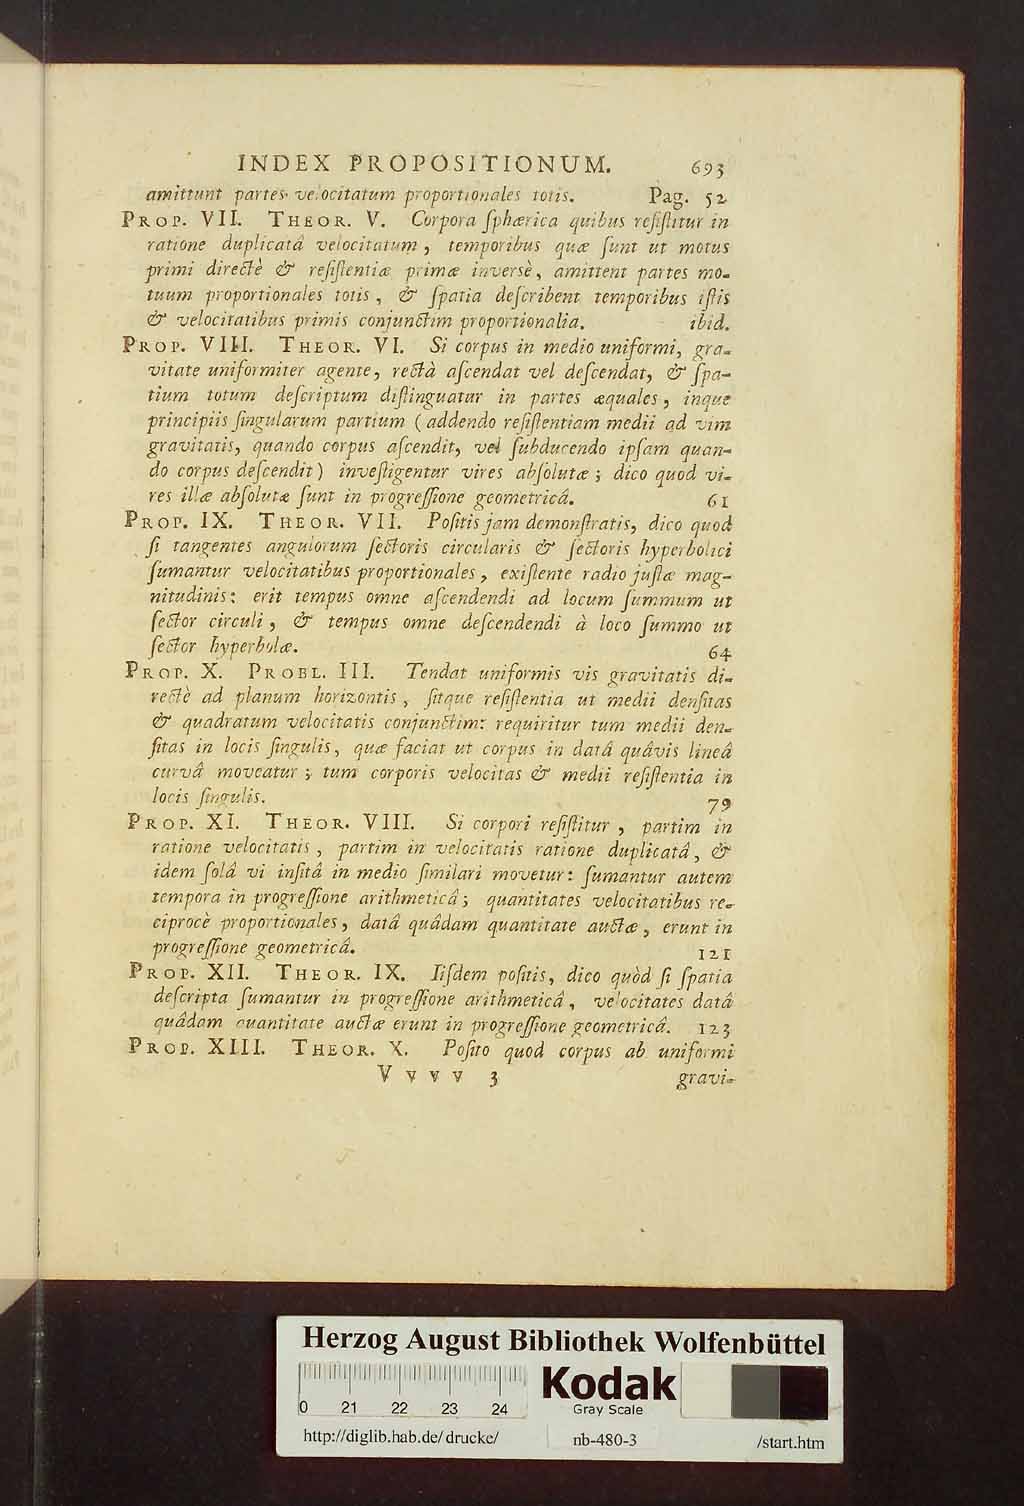 INDEX PROPOSITIONUM. 693
amittunt partes velocitatum proportionales totis. Pag. 52
PROP. VII. THEOR. V. Corpora ſphærica quibus reſiſtitur in
ratione duplicatâ velocitatum, temporibus quæ ſunt ut motus
primi directè & reſiſtentiæ primæ inversè, amittent partes mo-
tuum proportionales totis, & ſpatia deſcribent temporibus iſtis
& velocitatibus primis conjunctim proportionalia. ibid.
PROP. VIII. THEOR. VI. Si corpus in medio uniformi, gra-
vitate uniformiter agente, rectà aſcendat vel deſcendat, & ſpa-
tium totum deſcriptum diſtinguatur in partes æquales, inque
principiis ſingularum partium (addendo reſiſtentiam medii ad vim
gravitatis, quando corpus aſcendit, vel ſubducendo ipſam quan-
do corpus deſcendit) inveſtigentur vires abſolutæ; dico quod vi-
res illæ abſolutæ ſunt in progreſſione geometricâ. 61
PROP. IX. THEOR. VII. Poſitis jam demonſtratis, dico quod
ſi tangentes angulorum ſectoris circularis & ſectoris hyperbolici
ſumantur velocitatibus proportionales, exiſtente radio juſtæ mag-
nitudinis: erit tempus omne aſcendendi ad locum ſummum ut
ſector circuli, & tempus omne deſcendendi à loco ſummo ut
ſector hyperbolæ. 64
PROP. X. PROBL. III. Tendat uniformis vis gravitatis di-
rectè ad planum horizontis, ſitque reſiſtentia ut medii denſitas
& quadratum velocitatis conjunctim: requiritur tum medii den-
ſitas in locis ſingulis, quæ faciat ut corpus in datâ quâvis lineâ
curvâ moveatur; tum corporis velocitas & medii reſiſtentia in
locis ſingulis. 79
PROP. XI. THEOR. VIII. Si corpori reſiſtitur, partim in
ratione velocitatis, partim in velocitatis ratione duplicatâ, &
idem ſolâ vi inſitâ in medio ſimilari movetur: ſumantur autem
tempora in progreſſione arithmeticâ; quantitates velocitatibus re-
ciprocè proportionales, datâ quâdam quantitate auctæ, erunt in
progreſſione geometricâ. 121
PROP. XII. THEOR. IX. Iiſdem poſitis, dico quòd ſi ſpatia
deſcripta ſumantur in progreſſione arithmeticâ, velocitates datâ
quâdam quantitate auctæ erunt in progreſſione geometricâ. 123
PROP. XIII. THEOR. X. Poſito quod corpus ab uniformi
V v v v 3 gravi-
Herzog August Bibliothek Wolfenbüttel
Kodak
0 21 22 23 24 Gray Scale
http://diglib.hab.de/drucke/ nb-480-3 /start.htm